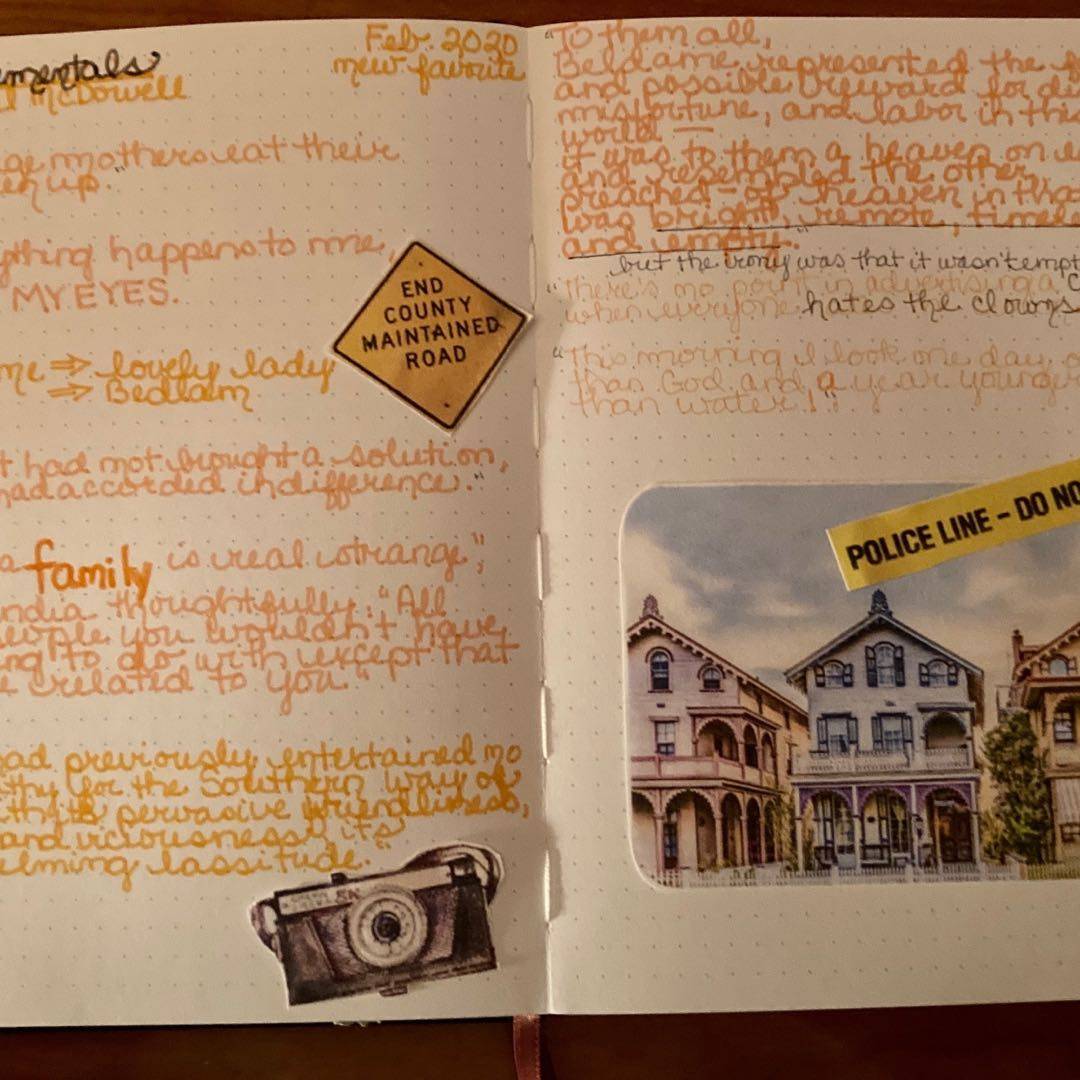 ementals
McDowell
Feb. 2020
new favorite
ge mothers eat their
en up."
ything happens to me,
MY EYES.
me ⇒ lovely lady
⇒ Bedlam
t had not brought a solution,
had accorded indifference."
a family is real strange";
India thoughtfully: "All
people you wouldn't have
ng to do with except that
e related to you"
ad previously entertained no
thy for the Southern way of
ith its pervasive friendliness,
and viciousness, its
elming lassitude."
END
COUNTY
MAINTAINED
ROAD
"To them all,
Beldame represented the
and possible reward for di
misfortune, and labor in this
world —
it was to them a heaven on e
and resembled the other
preached-of heaven in that
was bright, remote, timele
and empty."
but the irony was that it wasn't empt
"There's no point in advertising a c
when everyone hates the clowns
"This morning I look one day o
than God and a year younger
than water!"
POLICE LINE - DO NO